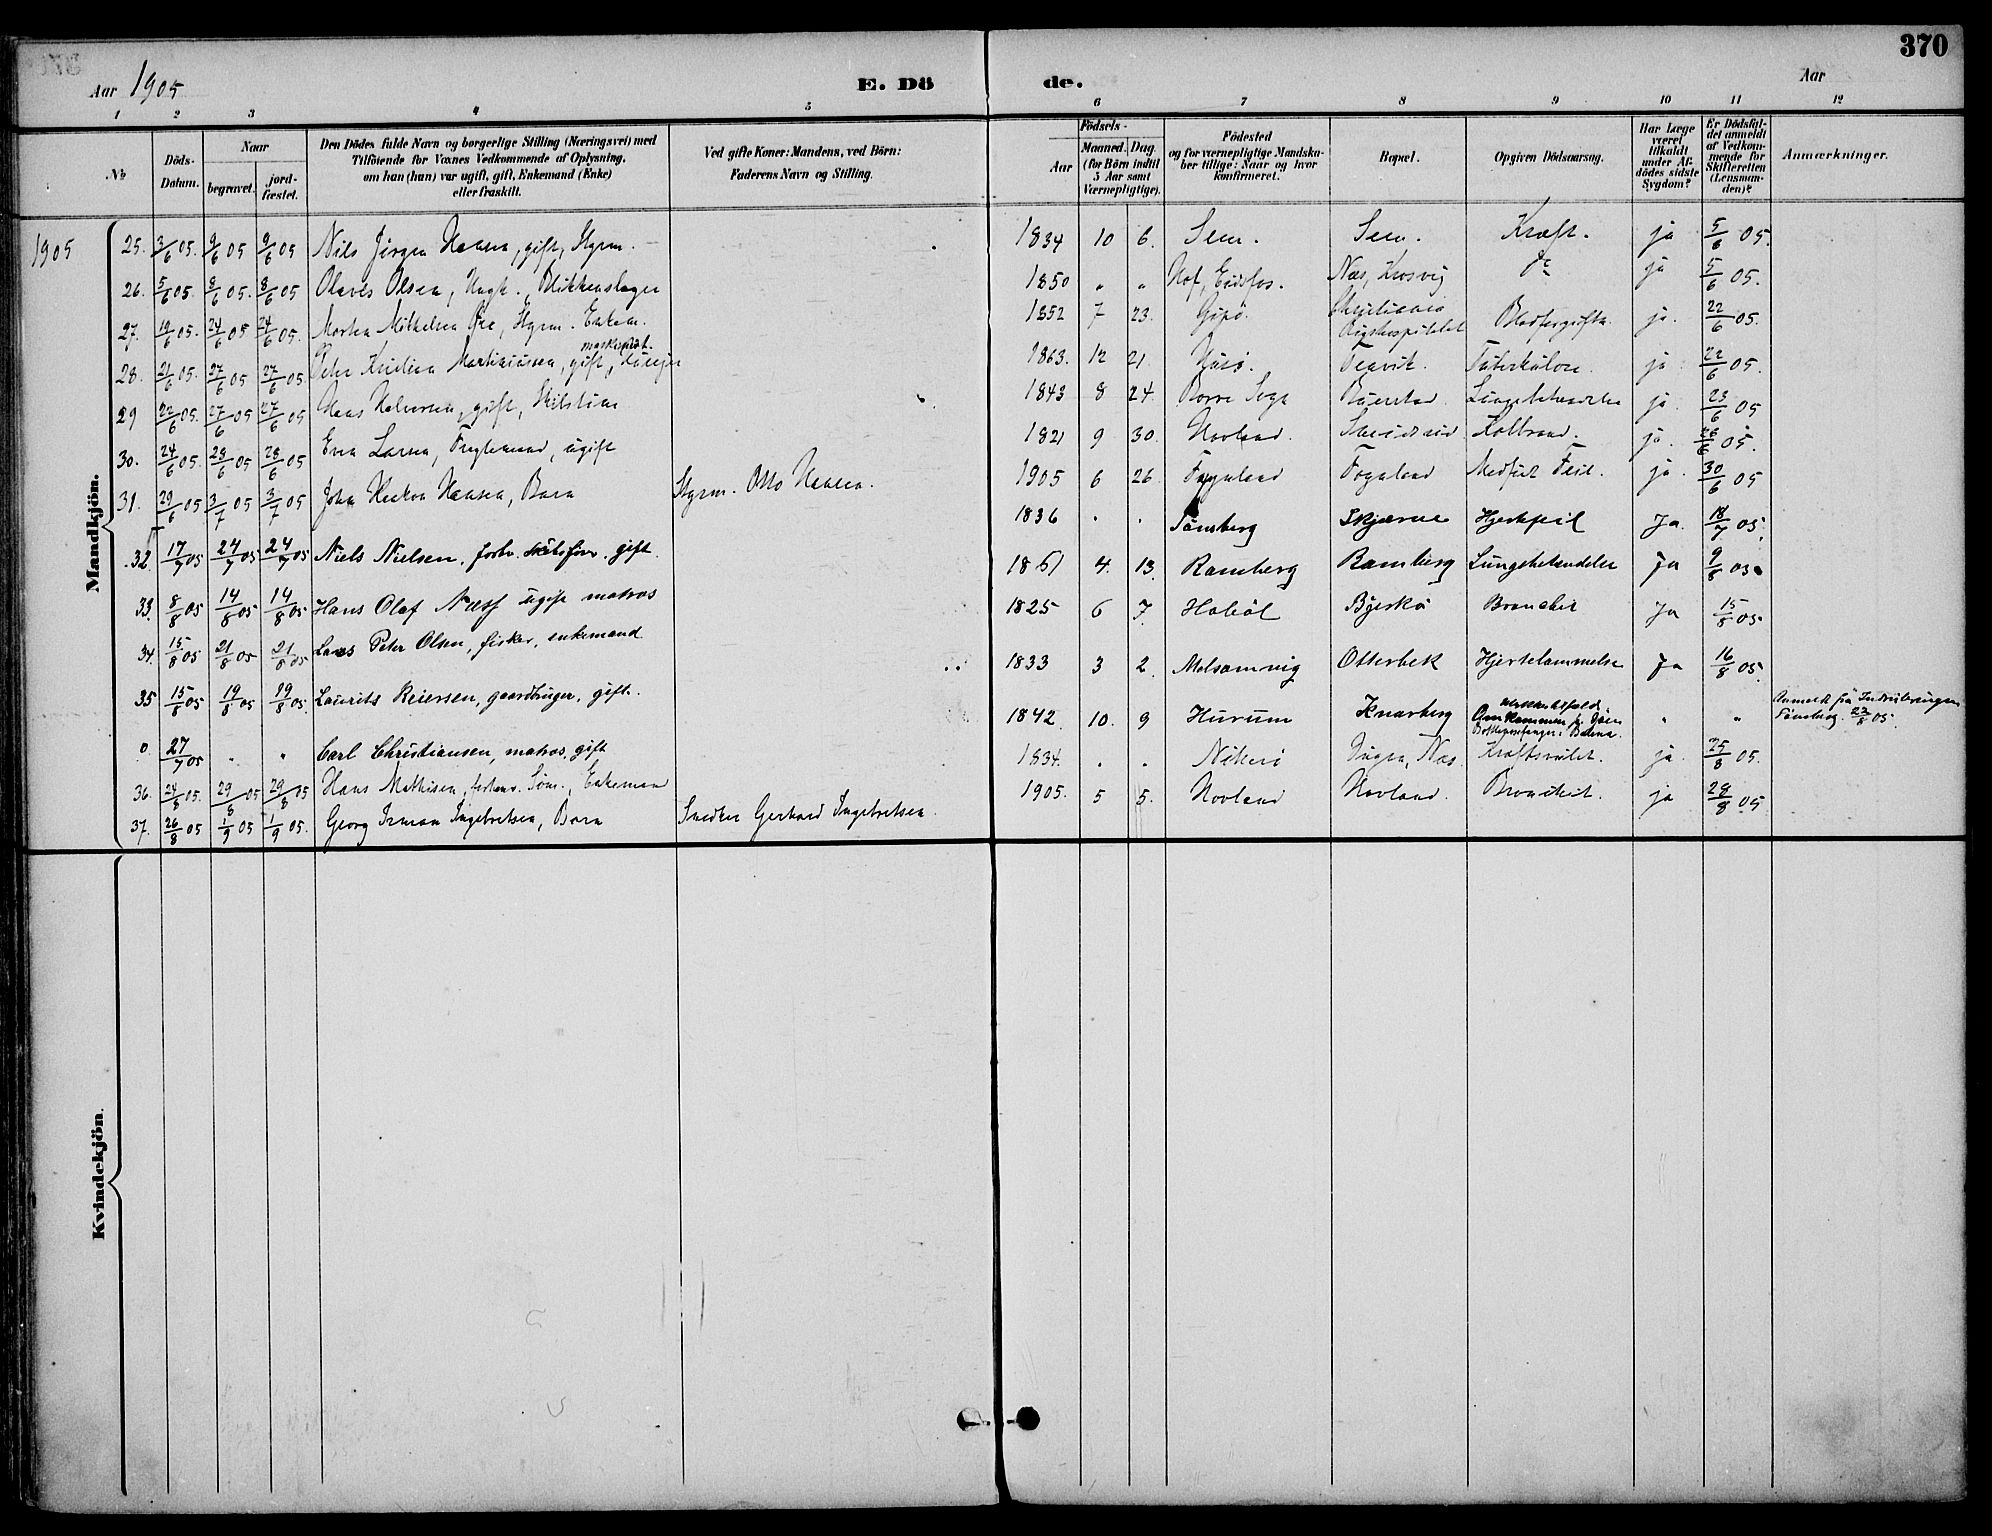 370
Aar 1905 E. Dö de. Aar
1 2 3 4 5 6 7 8 9 10 11 12
№ Döds-Datum. Naar begravet. jordfæstet. Den Dödes fulde Navn og borgerlige Stilling (Næringsvei) med Tilföiende for Voxnes Vedkommende af Oplysning, om han (hun) var ugift, gift, Enkemand (Enke) eller fraskilt. Ved gifte Koner: Mandens, ved Börn: Faderens Navn og Stilling. Födsels- Aar Maaned. Dag (for Börn indtil 5 Aar samt Værnepligtige). Födested og for værnepligtige Mandskaber tillige: Naar og hvor konfirmeret. Bopæl. Opgiven Dödsaarsag. Har Læge været tilkaldt under Afdödes sidste Sygdom? Er Dödsfaldet anmeldt af Vedkommende for Skifteretten (Lensmanden)? Anmærkninger.
Mandkjön.
1905 25. 3/6 05. 9/6 05 9/6 05 Nils Jörgen Hansen, gift, Styrm. 1834 10 6. Sem. Sem. Kræft. ja 5/6 05.
26. 5/6 05. 8/6 05. 8/6 05 Olaves Olsen, Ungk. Blikkenslager 1850 " " Hof, Eidsfos. Næs, Krosvig ja 5/6 05.
27. 19/6 05. 24/6 05 24/6 05. Morten Mikkelsen, Styrm. Enkem. 1852 7 23. Gipö. Christiania Rigshospitalet Blodforgiftn. ja. 22/6 05.
28. 21/6 05. 27/6 05 27/6 05. Peter Kristian Martiniussen, gift, maskinist. 1863. 12 21. Husö. Teavik. Tuberkulose. ja 22/6 05.
29 22/6 05. 27/6 05 27/6 05 Hans Halvorsen, gift, 1843 8 24. Borre Sogn Lungebetændelse ja. 23/6 05
30. 24/6 05. 28/6 05 28/6 05 Even Larsen, ugift 1821 9 30. Hovland. Koldbrand. ja. 26/6 05.
31. 29/6 05 3/7 05 3/7 05 John Haakon Hansen, Barn Styrm. Otto Hansen. 1905 6 26. Fognland Fognland Medfødt Feil. ja. 30/6 05
32. 17/7 05 24/7 05 24/7 05 Niels Nielsen, forhv. skibsförer. gift. 1836 . . Tönsberg Skjærne Hjertefeil Ja. 18/7 05.
33. 8/8 05 14/8 05 14/8 05 Hans Olaf Næss ugift matros 1861 4. 13. Ramberg Ramberg Lungebetændelse Ja 9/8 05.
34. 15/8 05 21/8 05 21/8 05 Lars Peter Olsen, fisker, enkemand 1825 6 7. Haböl Bjerkö Bronchit Ja 15/8 05.
35 15/8 05 19/8 05 19/8 05. Laurits Reiersen, gaardbruger, gift. 1833 3 2. Melsomvig Otterbek Hjertelammelse Ja 16/8 05.
0. 27/7 05 " " Carl Christiansen, matros, gift 1842. 10. 9 Hurum Knarberg " " Anmeldt fra Tönsberg. 23/8 05.
36. 24/8 05. 29/8 05 29/8 05 Hans Mathisen, forhenv. Söm., Enkeman 1834. . . Nöterö Næs. ja. 25/8 05.
37. 26/8 05 1/9 05 1/9 05. Georg Ingebretsen, Barn Snedker Gerhard Ingebretsen 1905. 5 5. Hovland Hovland. Bronchit. ja 28/8 05
Kvindekjön.